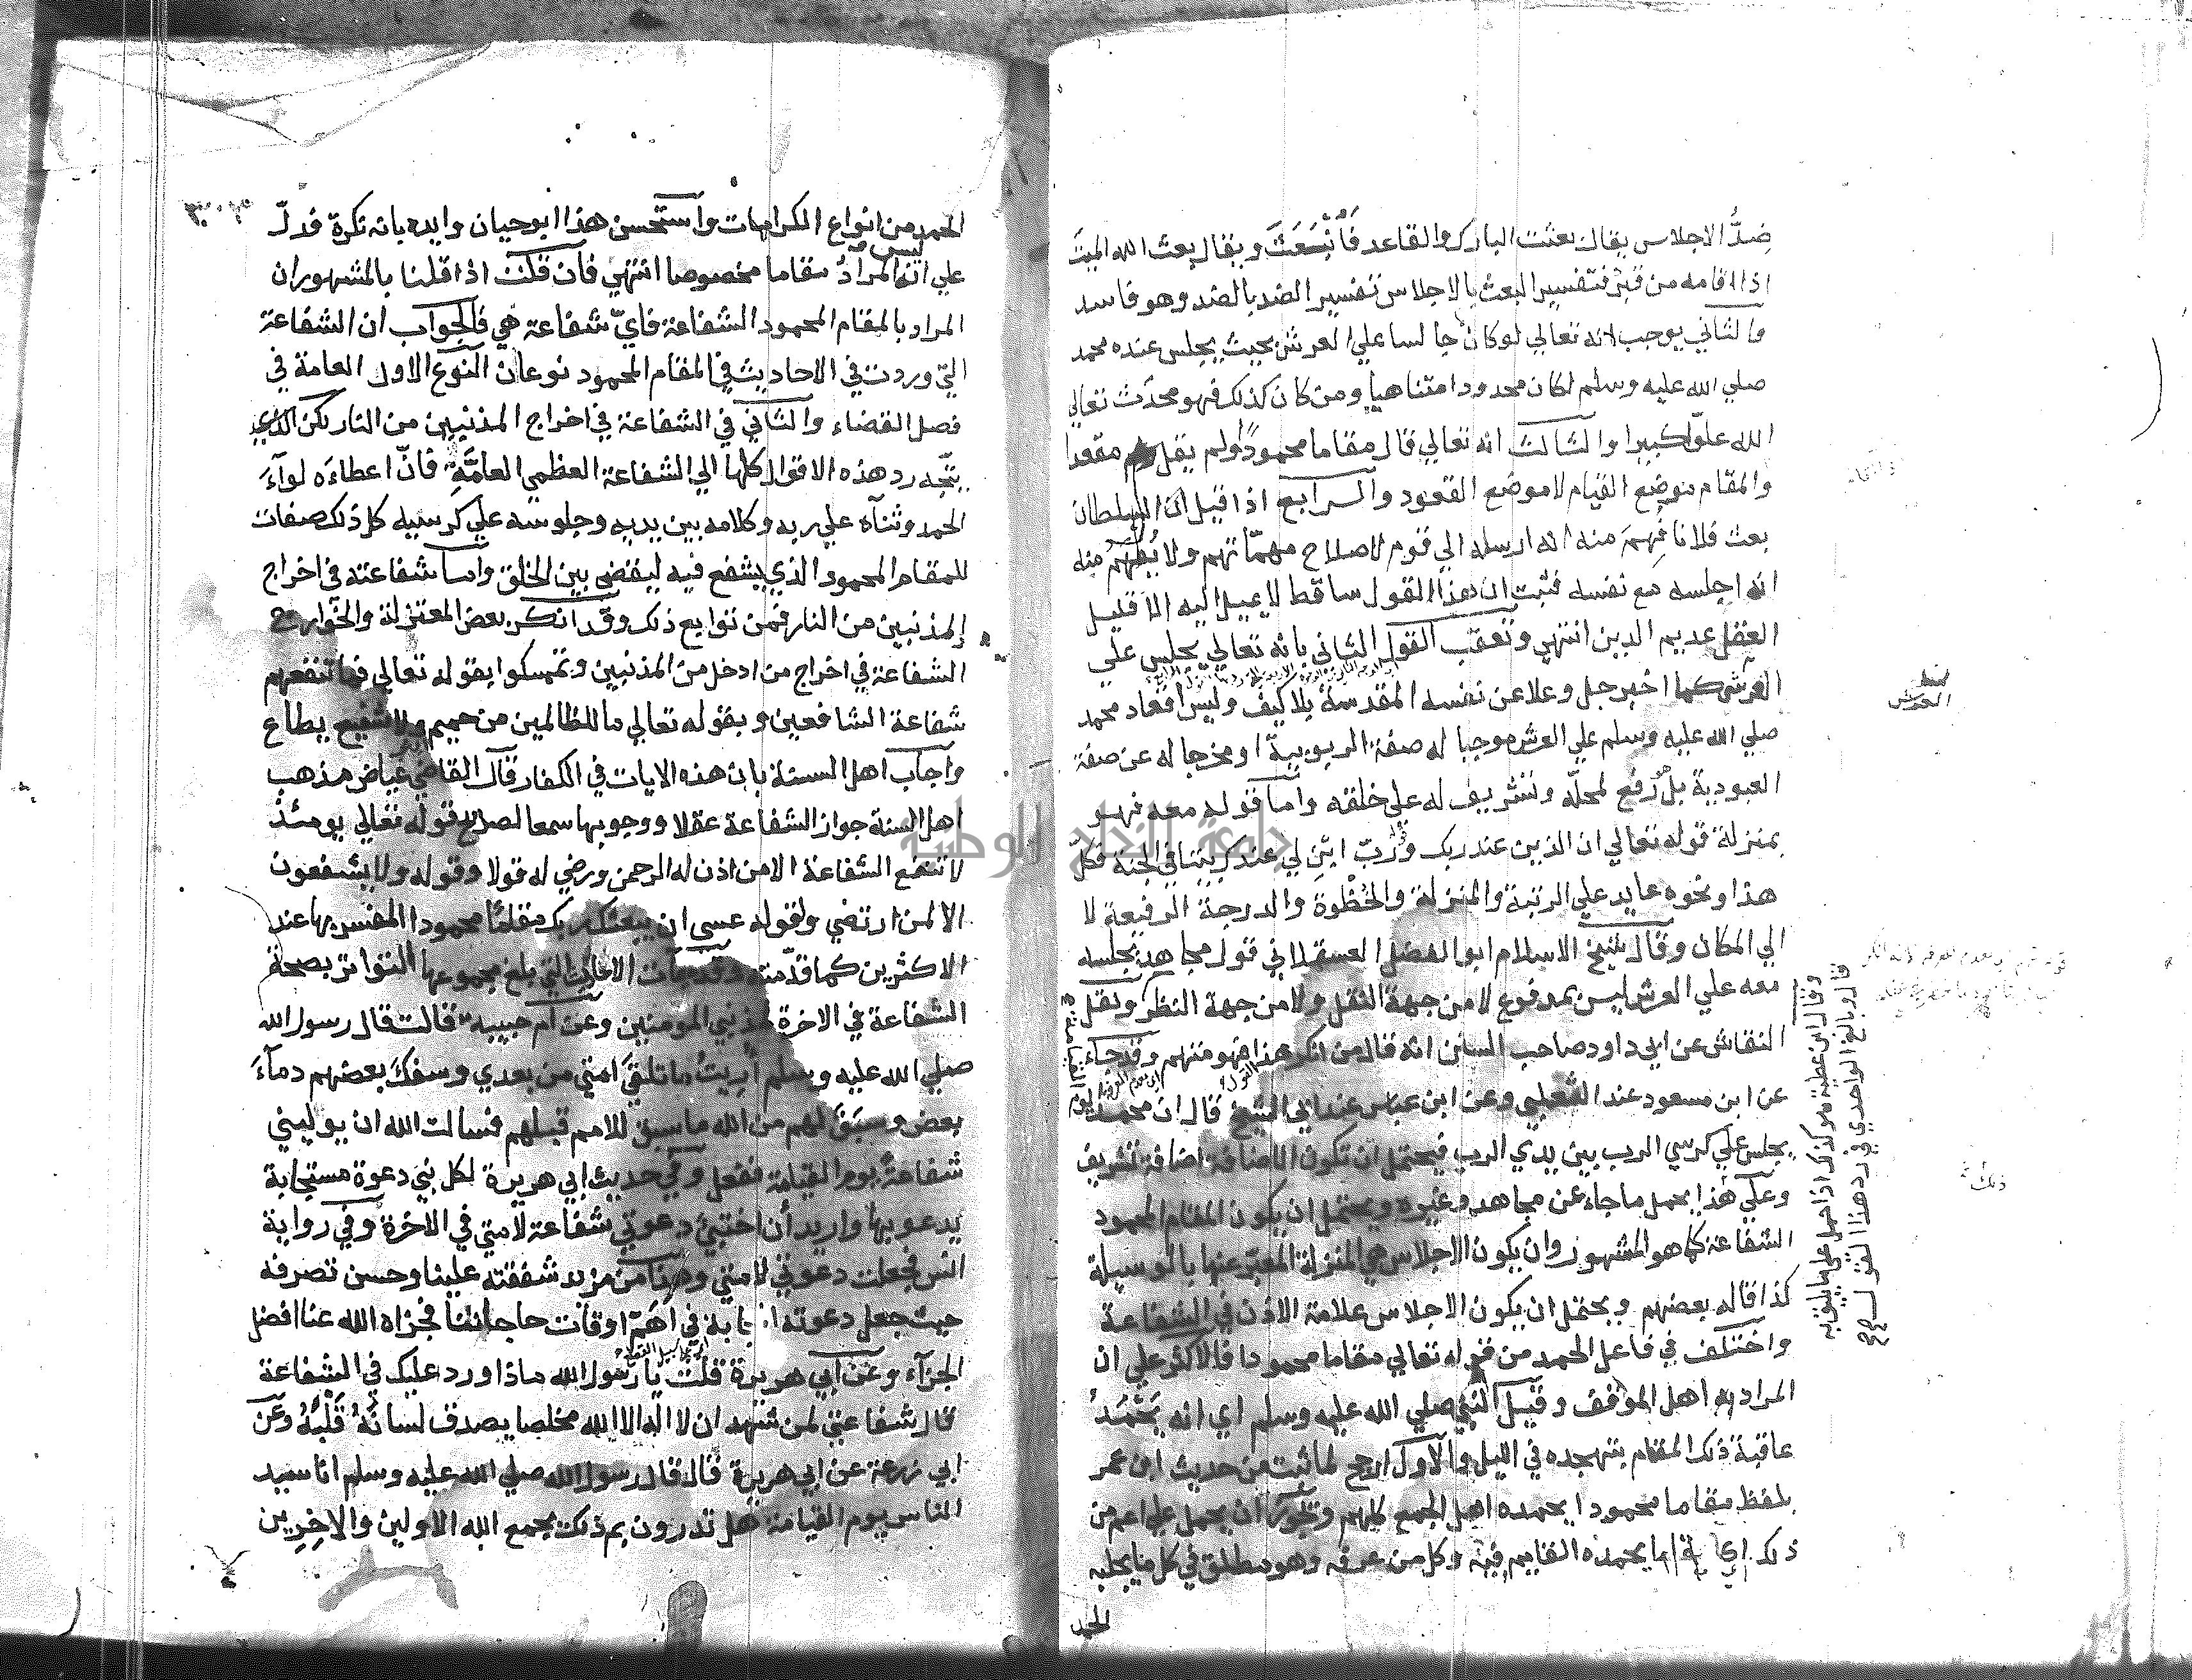 ضِدُّ الاجلاس يقال بعثت البارك والقاعد فَانْبَعَثَ ويقال بعث الله الميت
اذا اقامه من قبره فتفسير البعث بالاجلاس تفسير الضد بالضد وهو فاسد
والثاني يوجب لانه تعالي لو كان جالسا علي العرش بحيث يجلس عنده محمد
صلي الله عليه وسلم لكان محدودا متناهيا ومن كان كذلك فهو محدَث تعالي
الله علوّا كبيرا والثالث انه تعالي قال مقاما محمودًا ولم يقل مقعدا
والمقام موضع القيام لا موضع القعود والرابع اذا قيل ان السلطان
بعث فلانا فُهِمَ منه انه ارسله الي قوم لاصلاح مهمّاتهم ولا يُفْهَمُ منه
انه اجلسه مع نفسه فثبت ان هذا القول ساقط لا يميل اليه الا قليل
العقل عديم الدين انتهي وتعقب القول الثاني بانه تعالي يجلس علي
العرش كما اخبر جل وعلا عن نفسه المقدسة بلا كيف وليس اقعاد محمد
صلي الله عليه وسلم علي العرش موجبا له صفة الربوبية او مخرجا له عن صفة
العبودية بل رُفع لمحلّه وتشريف له علي خلقه واما قوله معه فهو
بمنزلة قوله تعالي ان الذين عند ربك ورَبّ ابْنِ لي عندك بيتا في الجنة فكل
هذا ونحوه عايد علي الرتبة والمنزلة والحُظْوة والدرجة الرفيعة لا
الي المكان وقال شيخ الاسلام ابو الفضل العسقلاني قول مجاهد يجلسه
معه علي العرش ليس بمدفوع لا من جهة النقل ولا من جهة النظر ونقل
النقاش عن ابي داود صاحب السنن انه قال من انكر هذا فهو متهم وقد جاء
عن ابن مسعود عند الثعلبي وعن ابن عباس عند ابي الشيخ قال ان محمدا
يجلس علي كرسي الرب بين يدي الرب فيحتمل ان تكون الاضافة اضافة تشريف
وعلي هذا يحمل ما جاء عن مجاهد وغيره ويحتمل ان يكون المقام المحمود
الشفاعة كما هو المشهور وان يكون الاجلاس هي المنزلة المعبّر عنها بالوسيلة
كذا قاله بعضهم ويحتمل ان يكون الاجلاس علامة الاذن في الشفاعة
واختلف في فاعل الحمد من قوله تعالي مقاما محمودا فالاكثر علي ان
المراد به اهل الموقف وقيل النبي صلي الله عليه وسلم اي انه يَحْمَدُ
عاقبة ذلك المقام بتهجده في الليل والاول ارجح لما ثبت من حديث ابن عمر
بلفظ مقاما محمودا يحمده اهل الجمع كلهم ويجوز ان يحمل علي اعم من
ذلك اي يحمده القايم فيه وكل من عرفه وهو مطلق في كل ما يجلب
الحمد
يوم القيامة
وقال ابن عطية هو كذلك اذا حمل علي ما يليق به
وبالغ الواحدي في رد هذا القول صح
الحمد من انواع الكرامات واستحسن هذا ابو حيان وايده بانه نكرة فدلّ
علي انه ليس المرادُ مقاما مخصوصا انتهي فان قلت اذا قلنا بالمشهور ان
المراد بالمقام المحمود الشفاعة فايّ شفاعة هي فالجواب ان الشفاعة
التي وردت في الاحاديث في المقام المحمود نوعان النوع الاول العامة في
فصل القضاء والثاني في الشفاعة في اخراج المذنبين من النار لكن الذي
يتّجه رد هذه الاقوال كلها الي الشفاعة العظمي العامَّةِ فانّ اعطاءَه لوآءَ
الحمد وثنآه علي ربه وكلامه بين يديه وجلوسه علي كرسيه كل ذلك صفات
للمقام المحمود الذي يشفع فيه ليقضي بين الخلق واما شفاعته في اخراج
المذنبين من النار فمن توابع ذلك وقد انكر بعض المعتزلة والخوارج
الشفاعة في اخراج من ادخل من المذنبين وتمسكوا بقوله تعالي فما تنفعهم
شفاعة الشافعين وبقوله تعالي ما للظالمين من حميم ولا شفيع يطاع
واجاب اهل السنة بان هذه الايات في الكفار قال القاضي عياض مذهب
اهل السنة جواز الشفاعة عقلا ووجوبها سمعا لصريح قوله تعالي يومئذ
لا تنفع الشفاعة الا من اذن له الرحمن ورضي له قولا وقوله ولا يشفعون
الا لمن ارتضي ولقوله عسي ان يبعثك ربك مقاما محمودا المفسر بها عند
الاكثرين كما قدّمته وقد جآت الاحاديث التي بلغ مجموعها التواتر بصحة
الشفاعة في الاخرة لمذنبي المؤمنين وعن ام حبيبة قالت قال رسول الله
صلي الله عليه وسلم أُريتُ ما تلقَي امتي من بعدي وسفكَ بعضهم دمآءَ
بعض وسبَقَ لهم من الله ما سبق للامم قبلهم فسالت الله ان يوليني
شفاعةً يوم القيامة ففعل وفي حديث ابي هريرة لكل نبي دعوة مستجابة
يدعو بها واريد أن اختبئ دعوتي شفاعة لامتي في الاخرة وفي رواية
انس فجعلت دعوتي لامتي وهذا من مزيد شفقته علينا وحسن تصرفه
حيث جعل دعوته في اَهَمّ اوقات حاجاتنا فجزاه الله عنا افضل
الجزآء وعن ابي هريرة قلت يا رسول الله ماذا ورد عليك في الشفاعة
قال شفاعتي لمن شهد ان لا اله الا الله مخلصا يصدق لسانَهُ قَلْبُهُ وعَن
ابي زرعة عن ابي هريرة قال قال رسول الله صلي الله عليه وسلم انا سيد
الناس يوم القيامة هل تدرون بم ذلك يجمع الله الاولين والاخِرِين
جامعة النجاح الوطنية